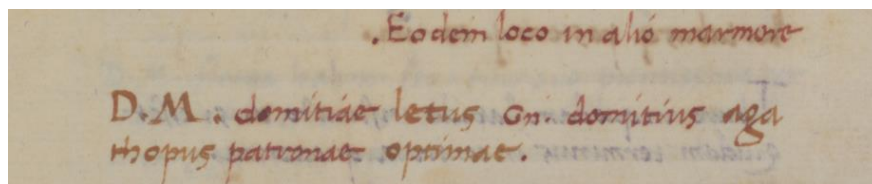 .Eodem loco in alio marmore
D.M. domitiae letus Gn. domitius aga
thopus patronae optimae.